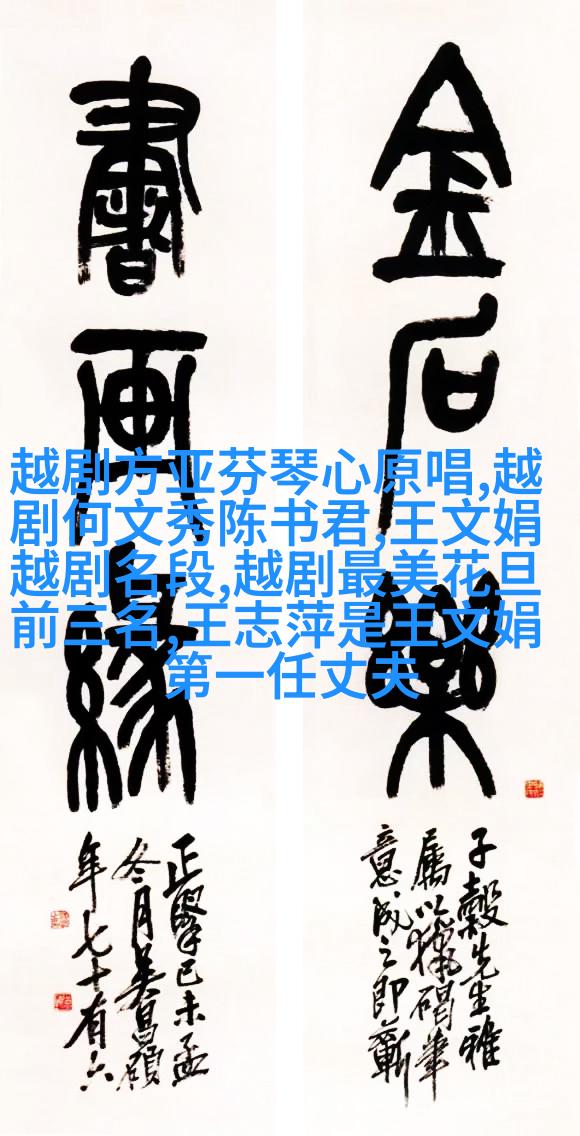 金石樂
子穀先生雅
屬以獵碣筆
意成之即蘄
書畫緣
正己未孟
冬月吳昌碩
年七十有六
越剧方亚芬琴心原唱,越
剧何文秀陈书君,王文娟
越剧名段,越剧最美花旦
前三名,王志萍是王文娟
第一任丈夫